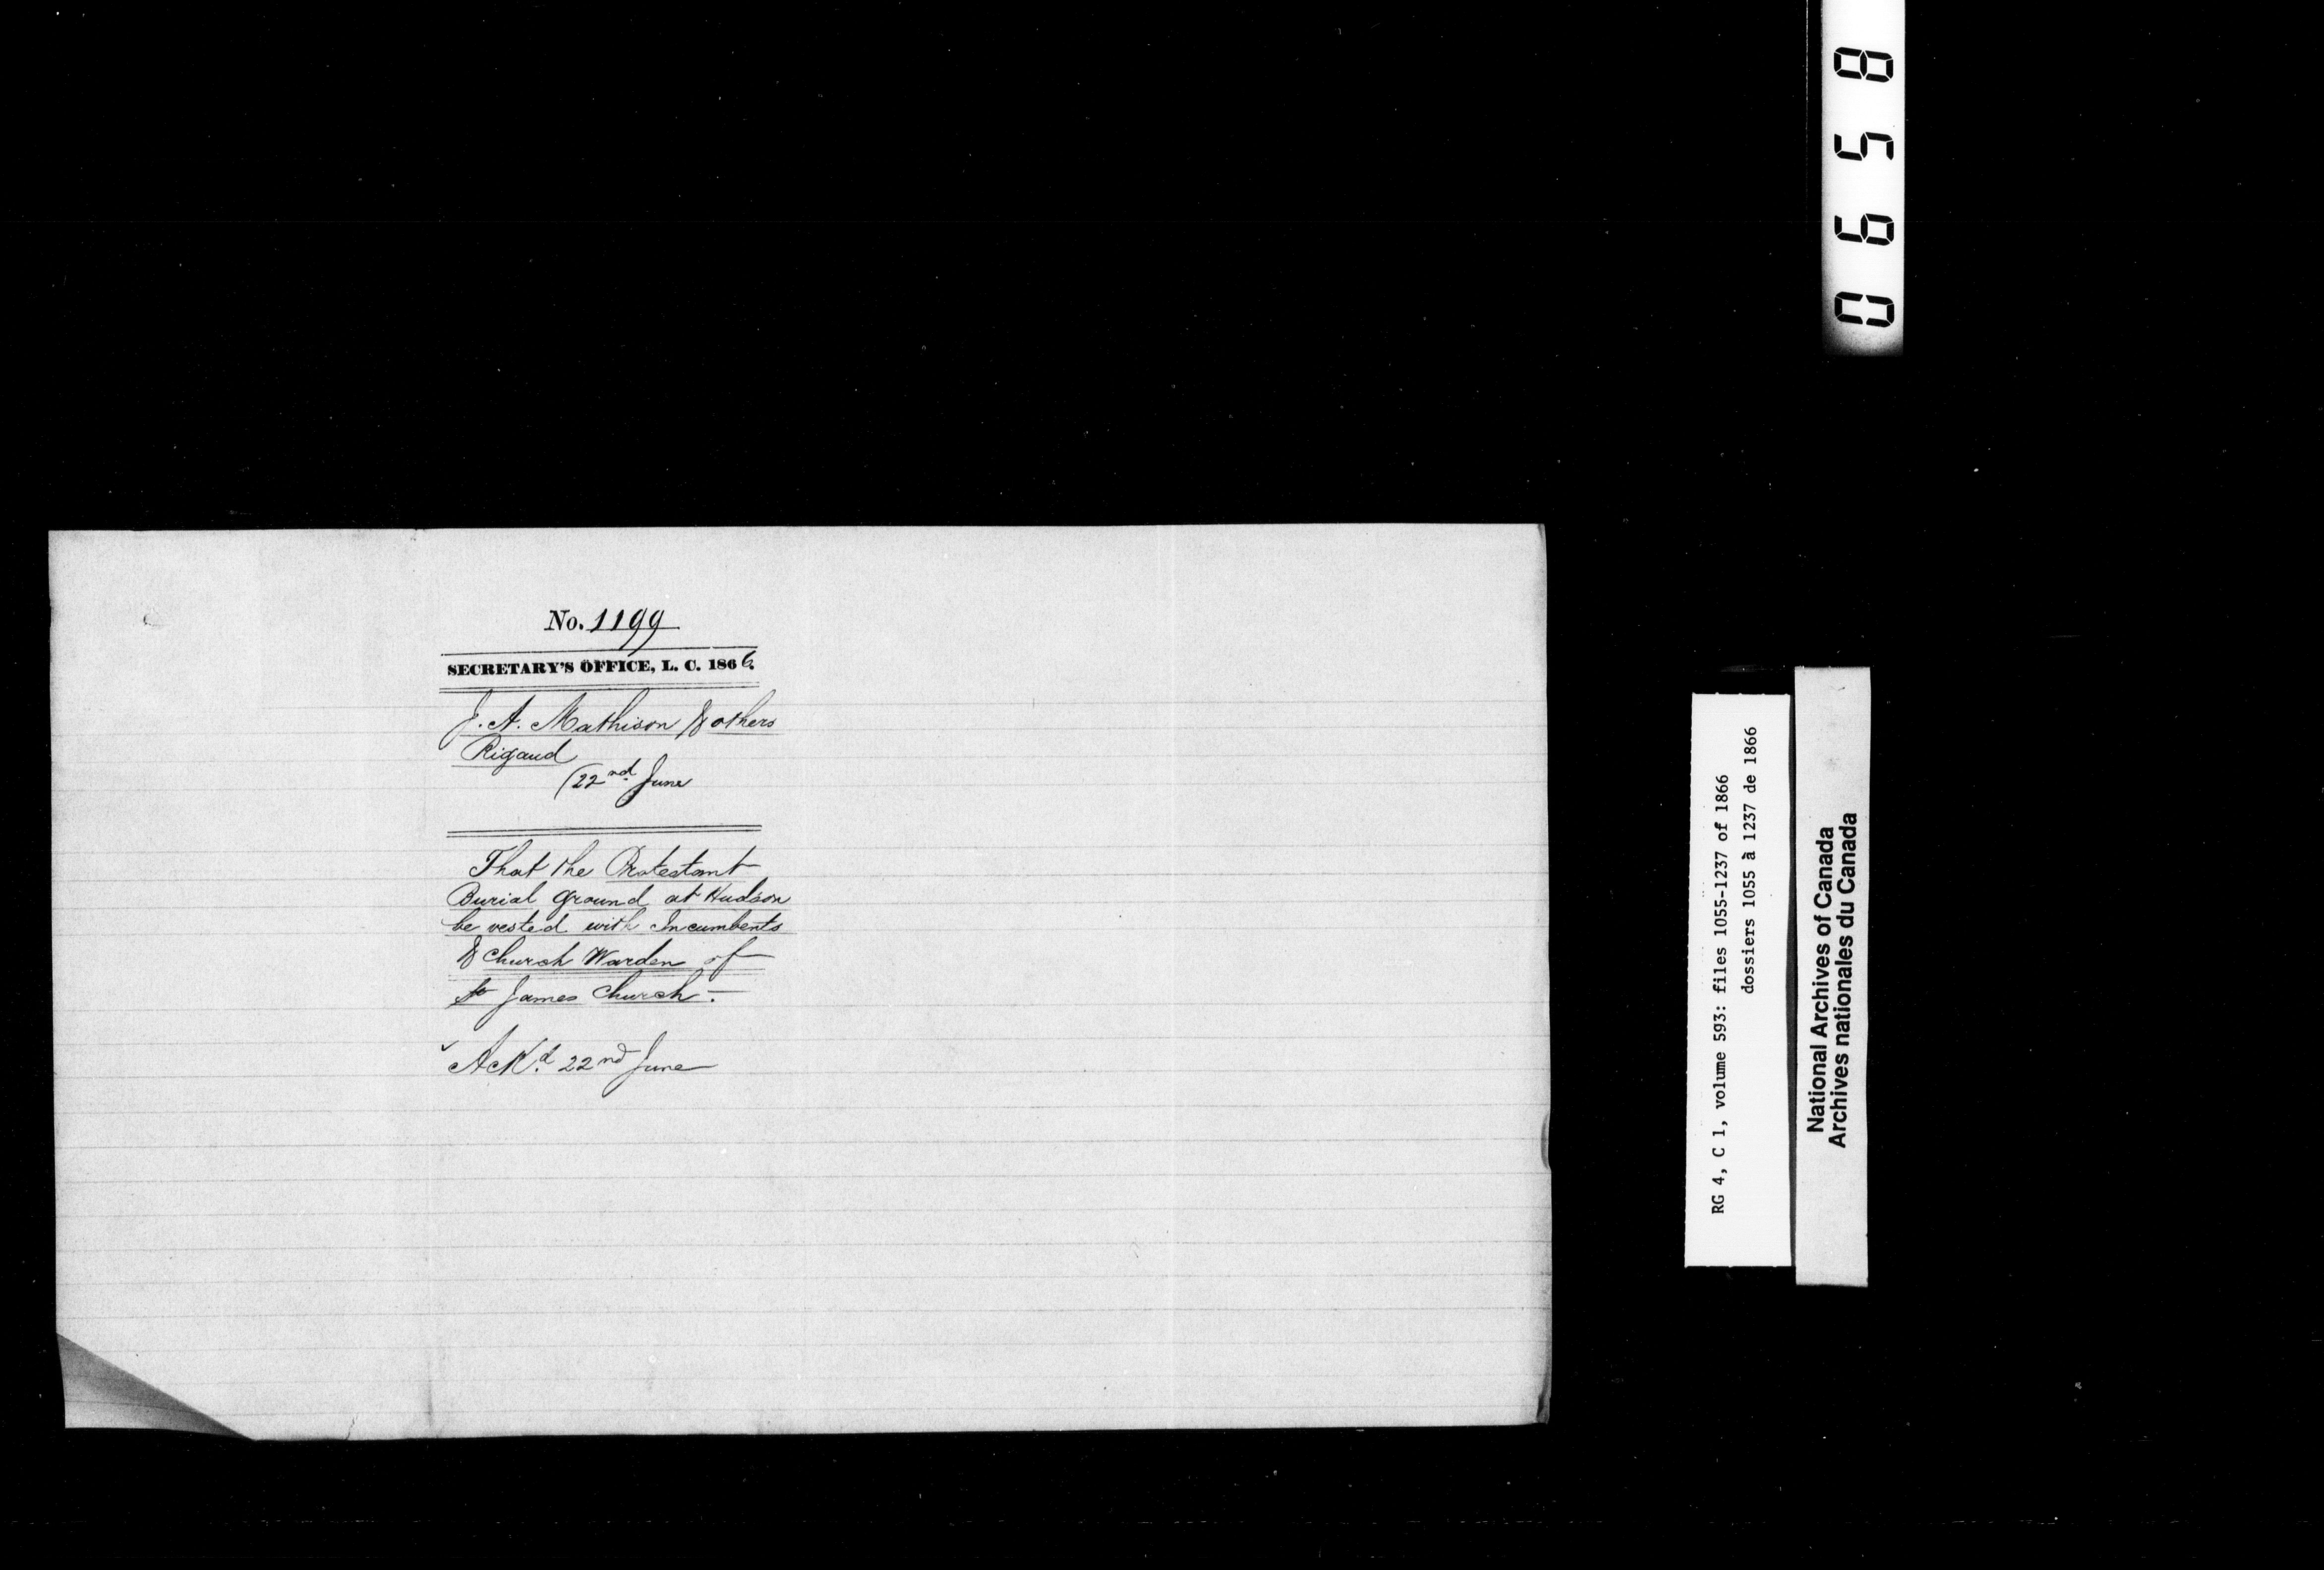 No. 1199
SECRETARY'S OFFICE, L. C. 1866.
J. A. Mathison & others
Rigaud
(22nd June
That the Protestant
Burial ground at Hudson
be vested with Incumbents
& Church Warden of
St James Church.
Ackd. 22nd June
0658
RG 4, C 1, volume 593: files 1055-1237 of 1866
dossiers 1055 à 1237 de 1866
National Archives of Canada
Archives nationales du Canada